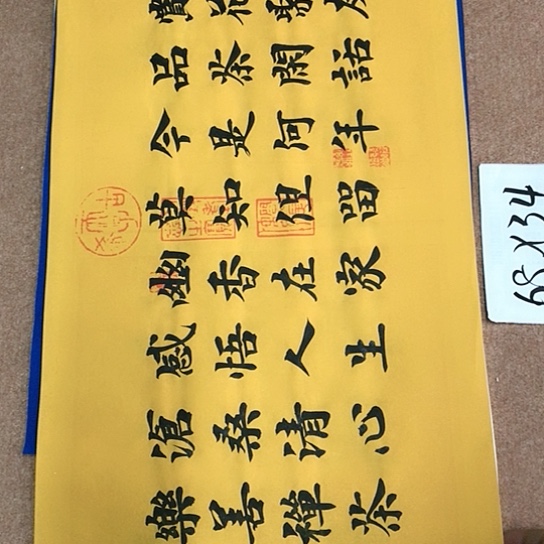 品茶閑話
今是何年
莫知但留
幽香在家
感悟人生
滄桑清心
樂善禪茶
68X34